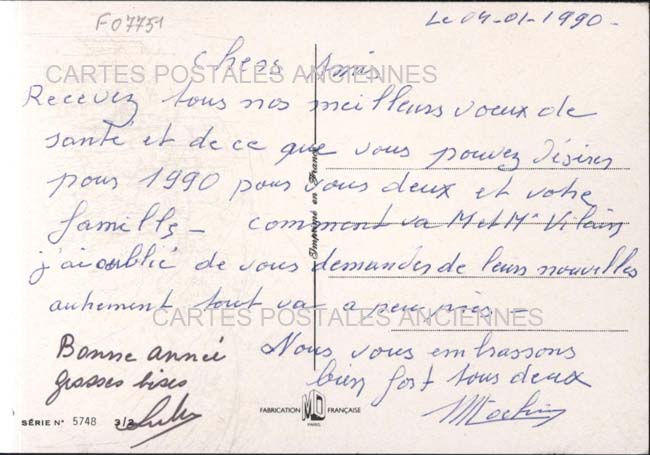 F07751
Le 04-01-1990-
Chers Amis
CARTES POSTALES ANCIENNES
Recevez tous nos meilleurs voeux de
santé et de ce que vous pouvez Désirer
pour 1990 pour vous deux et votre
famille - comment va M et Me Vilain
j'ai oublié de vous demander de leurs nouvelles
autrement tout va a peu près -
CARTES POSTALES ANCIENNES
Imprimé en France
Nous vous embrassons
bien fort tous deux
Bonne année
grosses bises
SÉRIE N° 5748 3/2
FABRICATION MD FRANÇAISE
PARIS